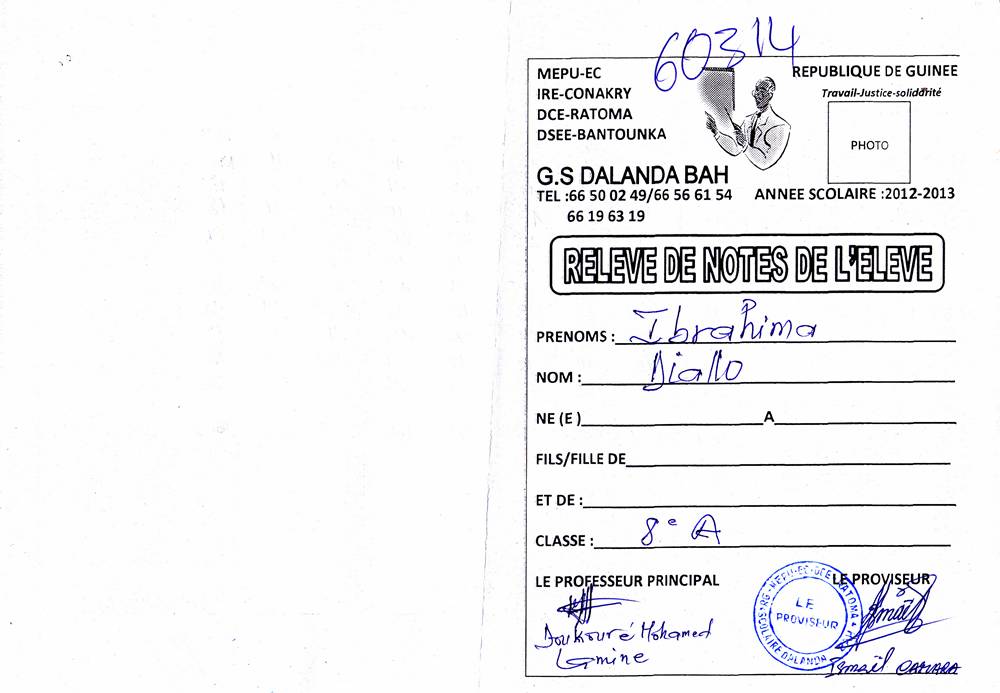 60314
MEPU-EC
IRE-CONAKRY
DCE-RATOMA
DSEE-BANTOUNKA
REPUBLIQUE DE GUINEE
Travail-Justice-solidarité
PHOTO
G.S DALANDA BAH
TEL :66 50 02 49/66 56 61 54
66 19 63 19
ANNEE SCOLAIRE :2012-2013
RELEVE DE NOTES DE L'ELEVE
PRENOMS : Ibrahima
NOM : Diallo
NE (E ) A
FILS/FILLE DE
ET DE :
CLASSE : 8e A
LE PROFESSEUR PRINCIPAL
LE PROVISEUR
Doukouré Mohamed
Lamine
MEPU-EC-DCE RATOMA
LE
PROVISEUR
SCOLAIRE DALANDA
Ismaël CAMARA